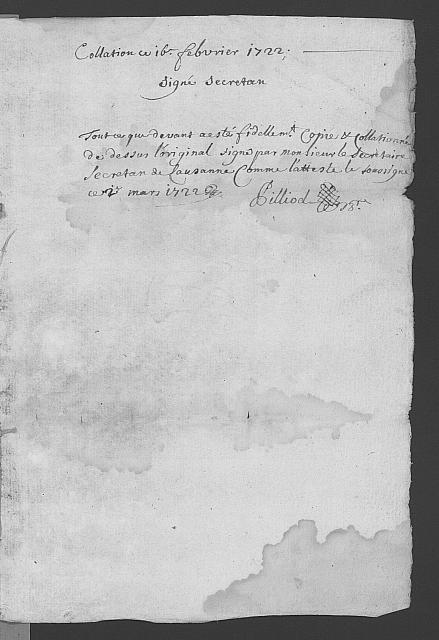 Collation ce 16e. febvrier 1722.
Signé Secretan
Tout ce que devant a esté fidellemt. Copie & Collationné
de dessus l'original signé par monsieur le Secretaire
Secretan de Lausanne Comme l'atteste le soussigné
ce mars 1722
Pilliod